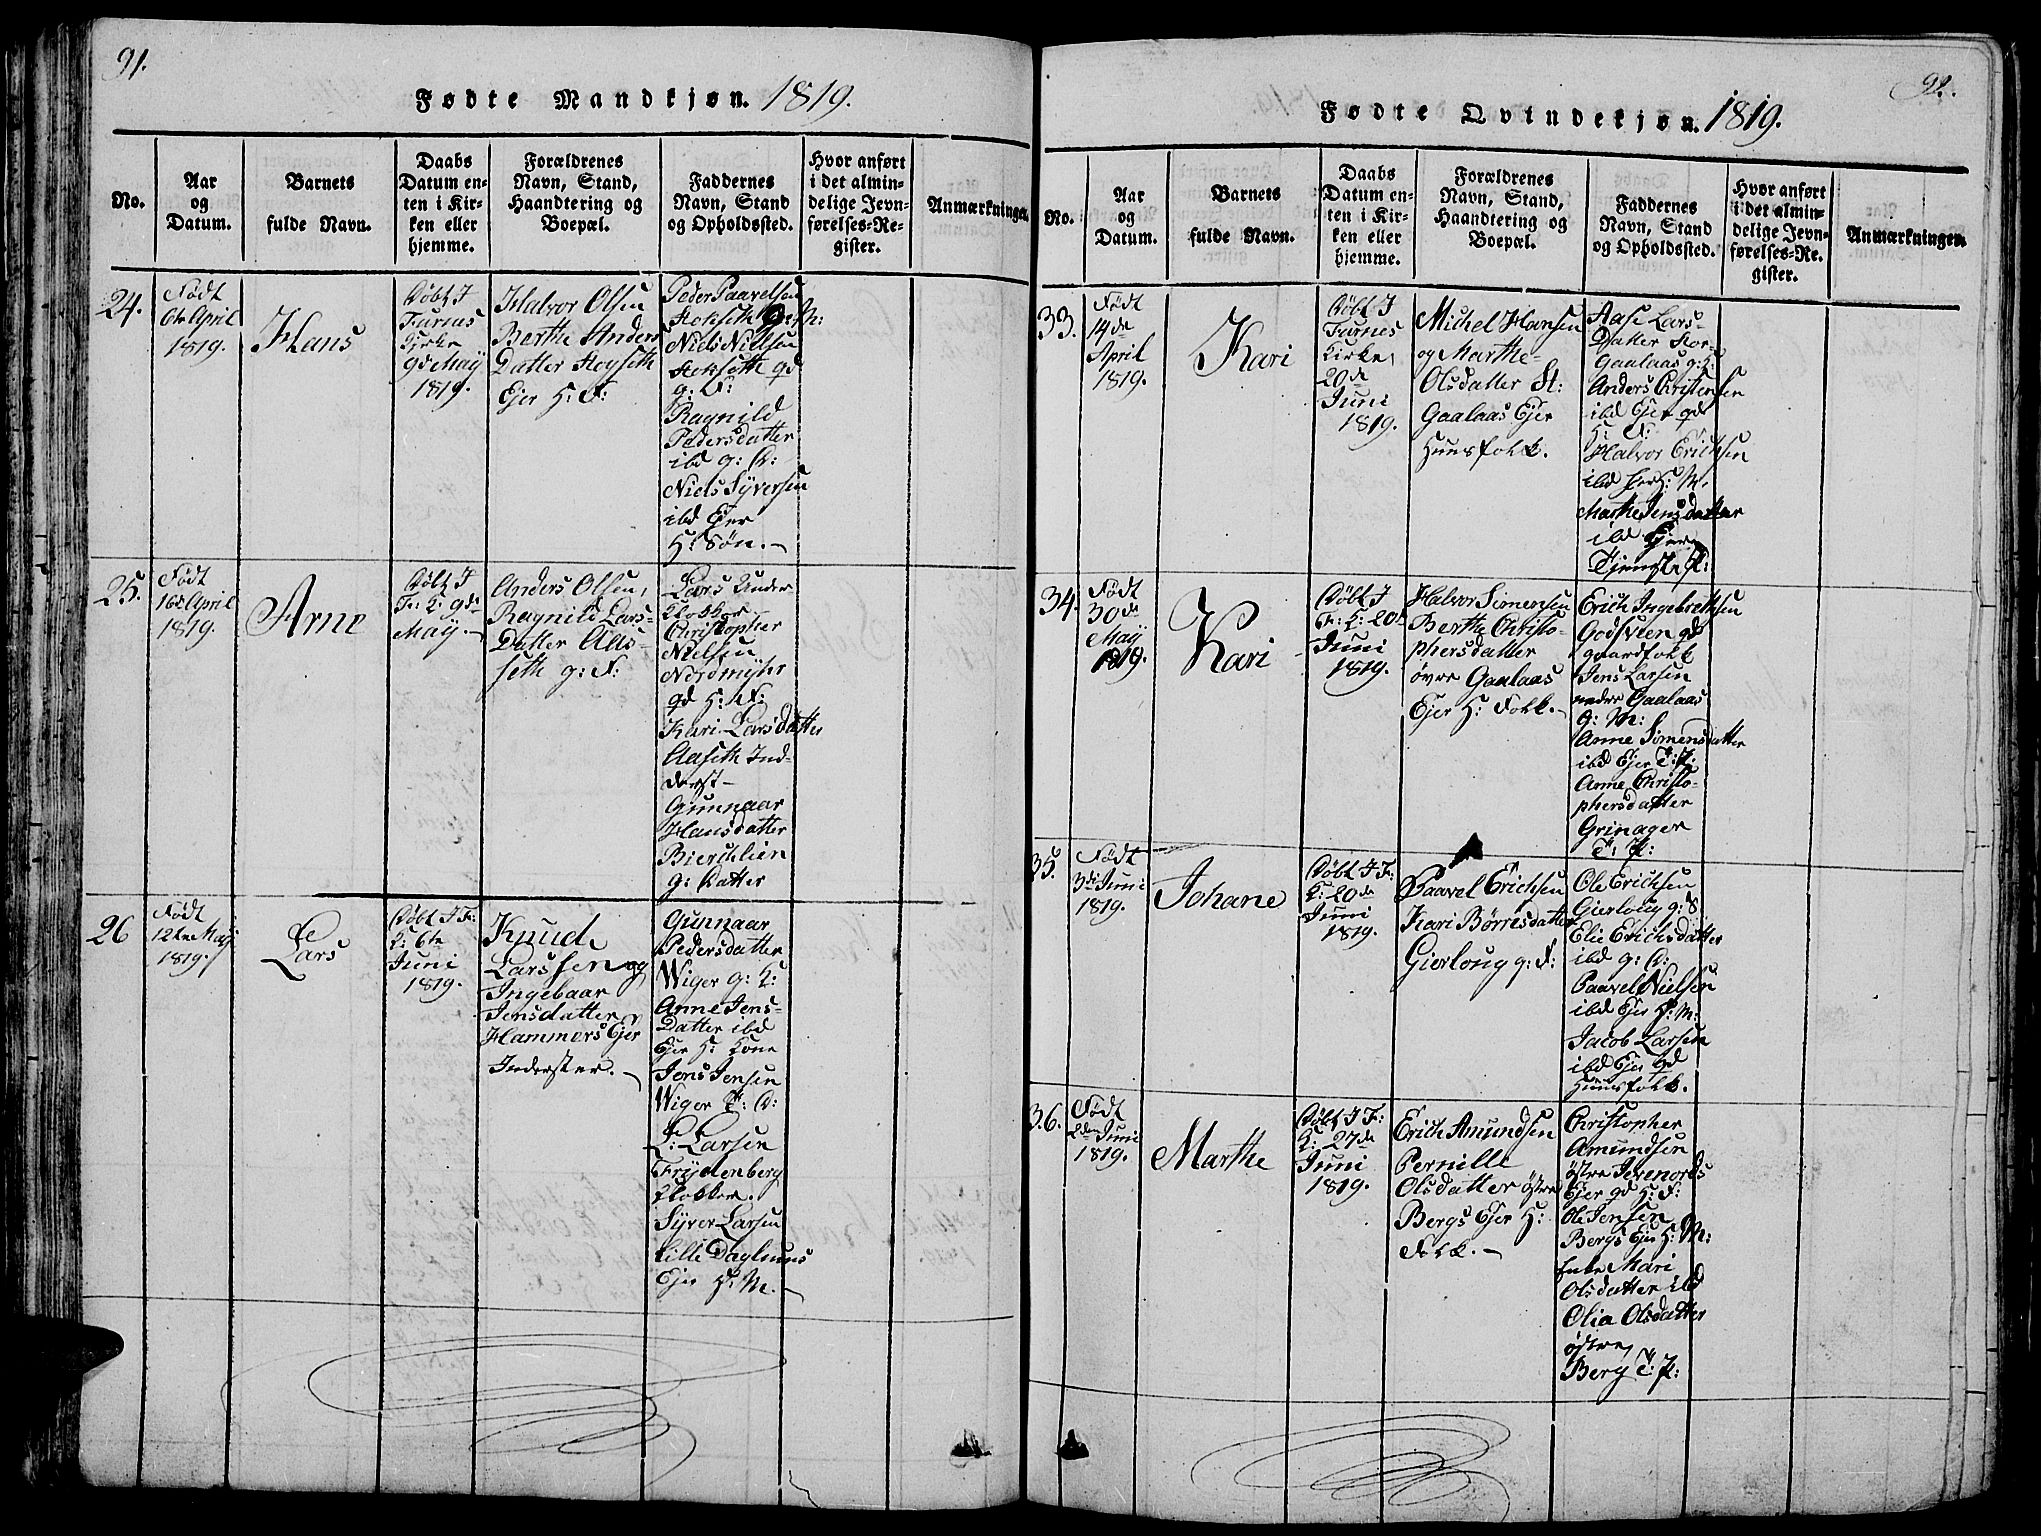 91.
Fødte Mandkjøn. 1819.
No.
Aar
og
Datum.
Barnets
fulde Navn.
Daabs
Datum en-
ten i Kir-
ken eller
hjemme.
Forældrenes
Navn, Stand,
Haandtering og
Boepæl.
Faddernes
Navn, Stand
og Opholdssted.
Hvor anført
i det almin-
delige Jevn-
førelses-Re-
gister.
Anmærkninger.
24.
Født
6te April
1819.
Hans
Døbt I
Furnes
Kirke
9de May
1819.
Halvor Olsen
Berthe Anders
Datter Hogseth
Ejer H: F:
Peder Paavelsen
Hokseth G: M:
Niels Nielsen
Hokseth gd
g: F:
Ragnild
Pedersdatter
ibd g: D:
Niels Syversen
ibd Ejer
H: Søn.
25.
Født
16de April
1819.
Arne
Døbt I
F: K: 9de
May
Anders Olsen,
Ragnild Lars-
Datter Aas-
seth g: F:
Lars Under
Klokker
Christopher
Nielsen
Nordmyhr
gd H: F:
Kari Larsdatter
Aaseth Ind-
derst
Gunnaar
Hansdatter
Bierchlien
g: Datter
26
Født
12te May
1819.
Lars
Døbt I F:
K: 6te
Juni
1819.
Knud
Larssen og
Ingebaar
Jensdatter
Hammers Ejer
Inderster.
Gunnaar
Pedersdatter
Wiger g: K:
Anne Jens-
Datter ibd
Ejer H: Kone
Jens Jensen
Wiger T: D:
L: Larsen
Frydenberg
Klokker.
Syver Larsen
Lille Daglunus
Ejer H: M.
92.
Fødte Qvindekjøn. 1819.
No.
Aar
og
Datum.
Barnets
fulde Navn.
Daabs
Datum en-
ten i Kir-
ken eller
hjemme.
Forældrenes
Navn, Stand,
Haandtering og
Boepæl.
Faddernes
Navn, Stand
og Opholdssted.
Hvor anført
i det almin-
delige Jevn-
førelses-Re-
gister.
Anmærkninger.
33.
Født
14de
April
1819.
Kari
Døbt I
Furnes
Kirke
20de
Juni
1819.
Michel Hansen
og Marthe
Olsdatter St:
Gaalaas Ejer
Huusfolk.
Aase Lars-
Datter Stor-
Gaalaas g: K:
Anders Christensen
ibd Ejer gd
H: F:
Halvor Erichsen
ibd Ejer H: M.
Marthe Jensdatter
ibd Ejer
Tjenest P:
34.
Født
30de
May
1819.
Kari
Døbt I
F: K: 20de
Juni
1819.
Halvor Simensen
Berthe Christo-
phersdatter
øvre Gaalaas
Ejer H: Folk.
Erich Ingebrethsen
Godsveen gd
gaardfolk
Jens Larsen
nedre Gaalaas
G: M:
Anne Simensdatter
ibd Ejer T: P:
Anne Christo-
phersdatter
Grinager
T: P:
35.
Født
3de Juni
1819.
Johane
Døbt I F:
K: 20de
Juni
1819.
Paavel Erichsen
Kari Børresdatter
Gierloug g: F:
Ole Erichsen
Gierloug g: S
Elie Erichsdatter
ibd g: D:
Paavel Nielsen
ibd Ejer H: M:
Jacob Larsen
ibd Ejer gd
Huusfolk.
36.
Født
2den Juni
1819.
Marthe
Døbt I F:
K: 27de
Juni
1819.
Erich Amundsen
Pernille
Olsdatter østre
Bergs Ejer H:
Folk.
Christopher
Amundsen
østre Jevenords
Ejer gd H: F:
Ole Jensen
Bergs Ejer H: M:
Enke Mari
Olsdatter ibd
Olia Olsdatter
østre
Berg T: P: